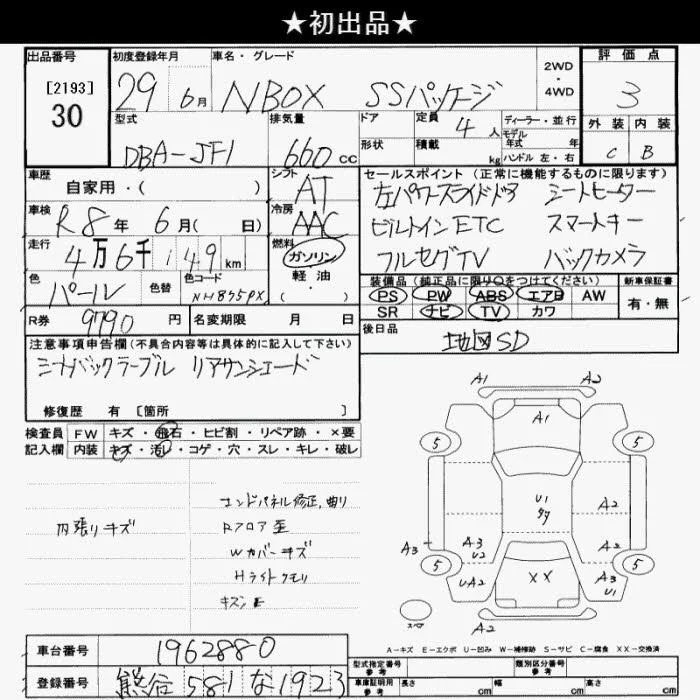 ★初出品★
出品番号
[2193]
30
初度登録年月
29年 6月
車名・グレード
NBOX SSパッケージ
2WD
・
4WD
評価点
3
外装 内装
C B
型式
DBA-JF1
排気量
660 cc
ドア
形状
定員
4 人
積載
kg
ディーラー・並行
モデル
年式 年
ハンドル 左・右
車歴
自家用・( )
シフト
AT
車検
R8年 6月( 日)
冷房
AAC
走行
4万6千149km
燃料
ガソリン
軽油
・( )
色
パール
色替
色コード
NH875PX
セールスポイント(正常に機能するものに限ります)
左パワースライドドア シートヒーター
ビルトインETC スマートキー
フルセグTV バックカメラ
装備品(純正品に限り○をつけてください)
PS PW ABS エアB AW
SR ナビ TV カワ
新車保証書
有・無
R券
9790円
名変期限 月 日
後日品
地図SD
注意事項申告欄(不具合内容等は具体的に記入して下さい)
シートバックテーブル リアサンシェード
修復歴 有 [箇所 ]
検査員
記入欄
FW キズ・飛石・ヒビ割・リペア跡・×要
内装 キズ・汚レ・コゲ・穴・スレ・キレ・破レ
内張りキズ
エンドパネル修正,曲り
Rフロア歪
Wカバーキズ
Hライトクモリ
A1 A2
A1
5 5
U1
A2
A3
A3
U2
A2
5 5
UA2
XX
A3
U1
スペア
A2
A-キズ E-エクボ U-凹み W-補修跡 S-サビ C-腐食 XX-交換済
車台番号
1962880
登録番号
熊谷 581 な 1923
型式指定番号
参考
類別区分番号
参考
車庫証明用
参考
長さ cm
幅 cm
高さ cm